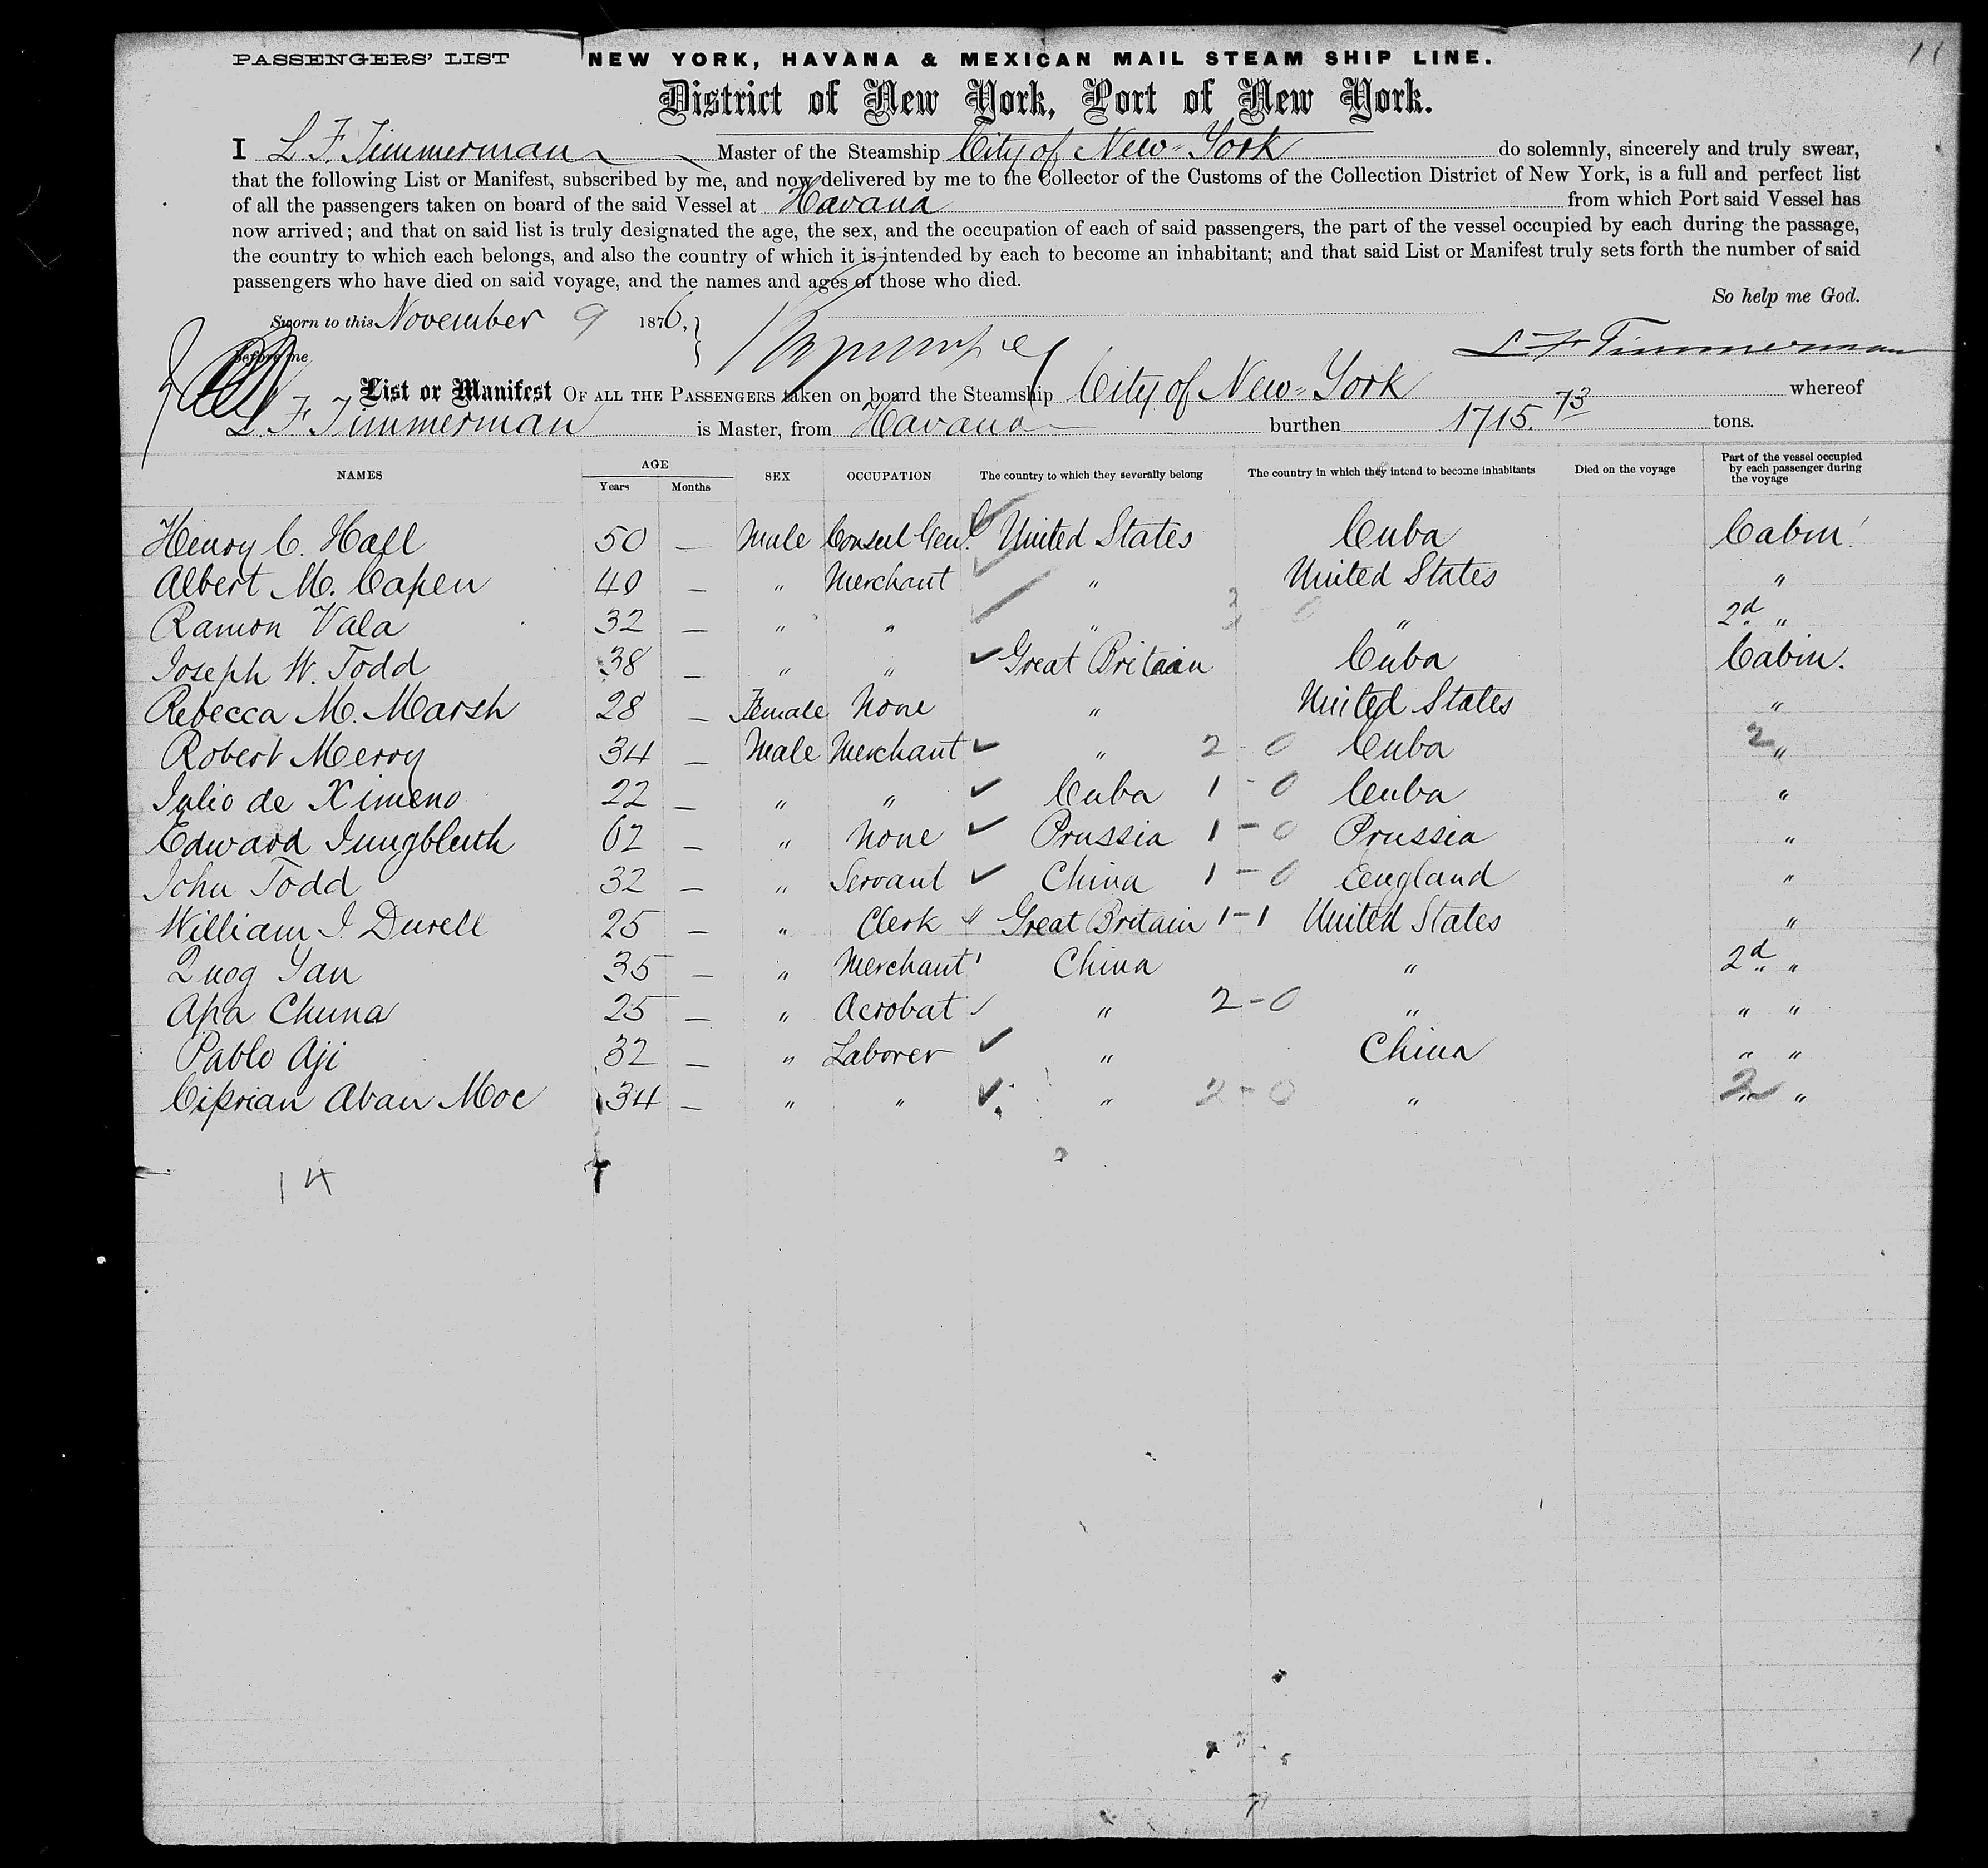 11
PASSENGERS' LIST NEW YORK, HAVANA & MEXICAN MAIL STEAM SHIP LINE.
District of New York, Port of New York.
I L. F. Timmerman Master of the Steamship City of New-York do solemnly, sincerely and truly swear,
that the following List or Manifest, subscribed by me, and now delivered by me to the Collector of the Customs of the Collection District of New York, is a full and perfect list
of all the passengers taken on board of the said Vessel at Havana from which Port said Vessel has
now arrived; and that on said list is truly designated the age, the sex, and the occupation of each of said passengers, the part of the vessel occupied by each during the passage,
the country to which each belongs, and also the country of which it is intended by each to become an inhabitant; and that said List or Manifest truly sets forth the number of said
passengers who have died on said voyage, and the names and ages of those who died.
So help me God.
Sworn to this November 9 1876,
Before me L F Timmerman
List or Manifest OF ALL THE PASSENGERS taken on board the Steamship City of New-York whereof
L. F. Timmerman is Master, from Havana burthen 1715.73 tons.
NAMES AGE Years Months SEX OCCUPATION The country to which they severally belong The country in which they intend to become inhabitants Died on the voyage Part of the vessel occupied by each passenger during the voyage
Henry C. Hall 50 — Male Consul Genl. United States Cuba Cabin
Albert M. Capen 40 — " Merchant " United States "
Ramon Vala 32 — " " " 3 0 " 2d "
Joseph W. Todd 38 — " " Great Britain Cuba Cabin.
Rebecca M. Marsh 28 — Female None " United States "
Robert Merry 34 — Male Merchant " 2-0 Cuba 2 "
Julio de Ximeno 22 — " " Cuba 1-0 Cuba "
Edward Jungbluth 62 — " None Prussia 1-0 Prussia "
John Todd 32 — " Servant China 1-0 England "
William J. Durell 25 — " Clerk Great Britain 1-1 United States "
Quog Yan 35 — " Merchant China " 2d "
Apa Chuna 25 — " Acrobat " 2-0 " " "
Pablo Aji 32 — " Laborer " China " "
Ciprian Aban Moc 34 — " " " 2-0 " 2 " "
14